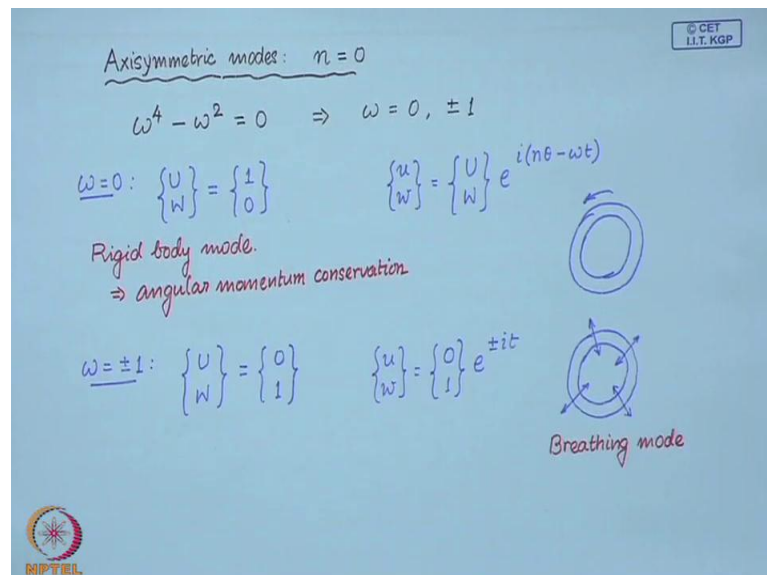 © CET
I.I.T. KGP
Axisymmetric modes: n = 0
ω⁴ − ω² = 0 ⇒ ω = 0, ± 1
ω = 0 : {U W} = {1 0} {u w} = {U W} e^{i(nθ − ωt)}
Rigid body mode.
⇒ angular momentum conservation
ω = ± 1 : {U W} = {0 1} {u w} = {0 1} e^{±it}
Breathing mode
NPTEL